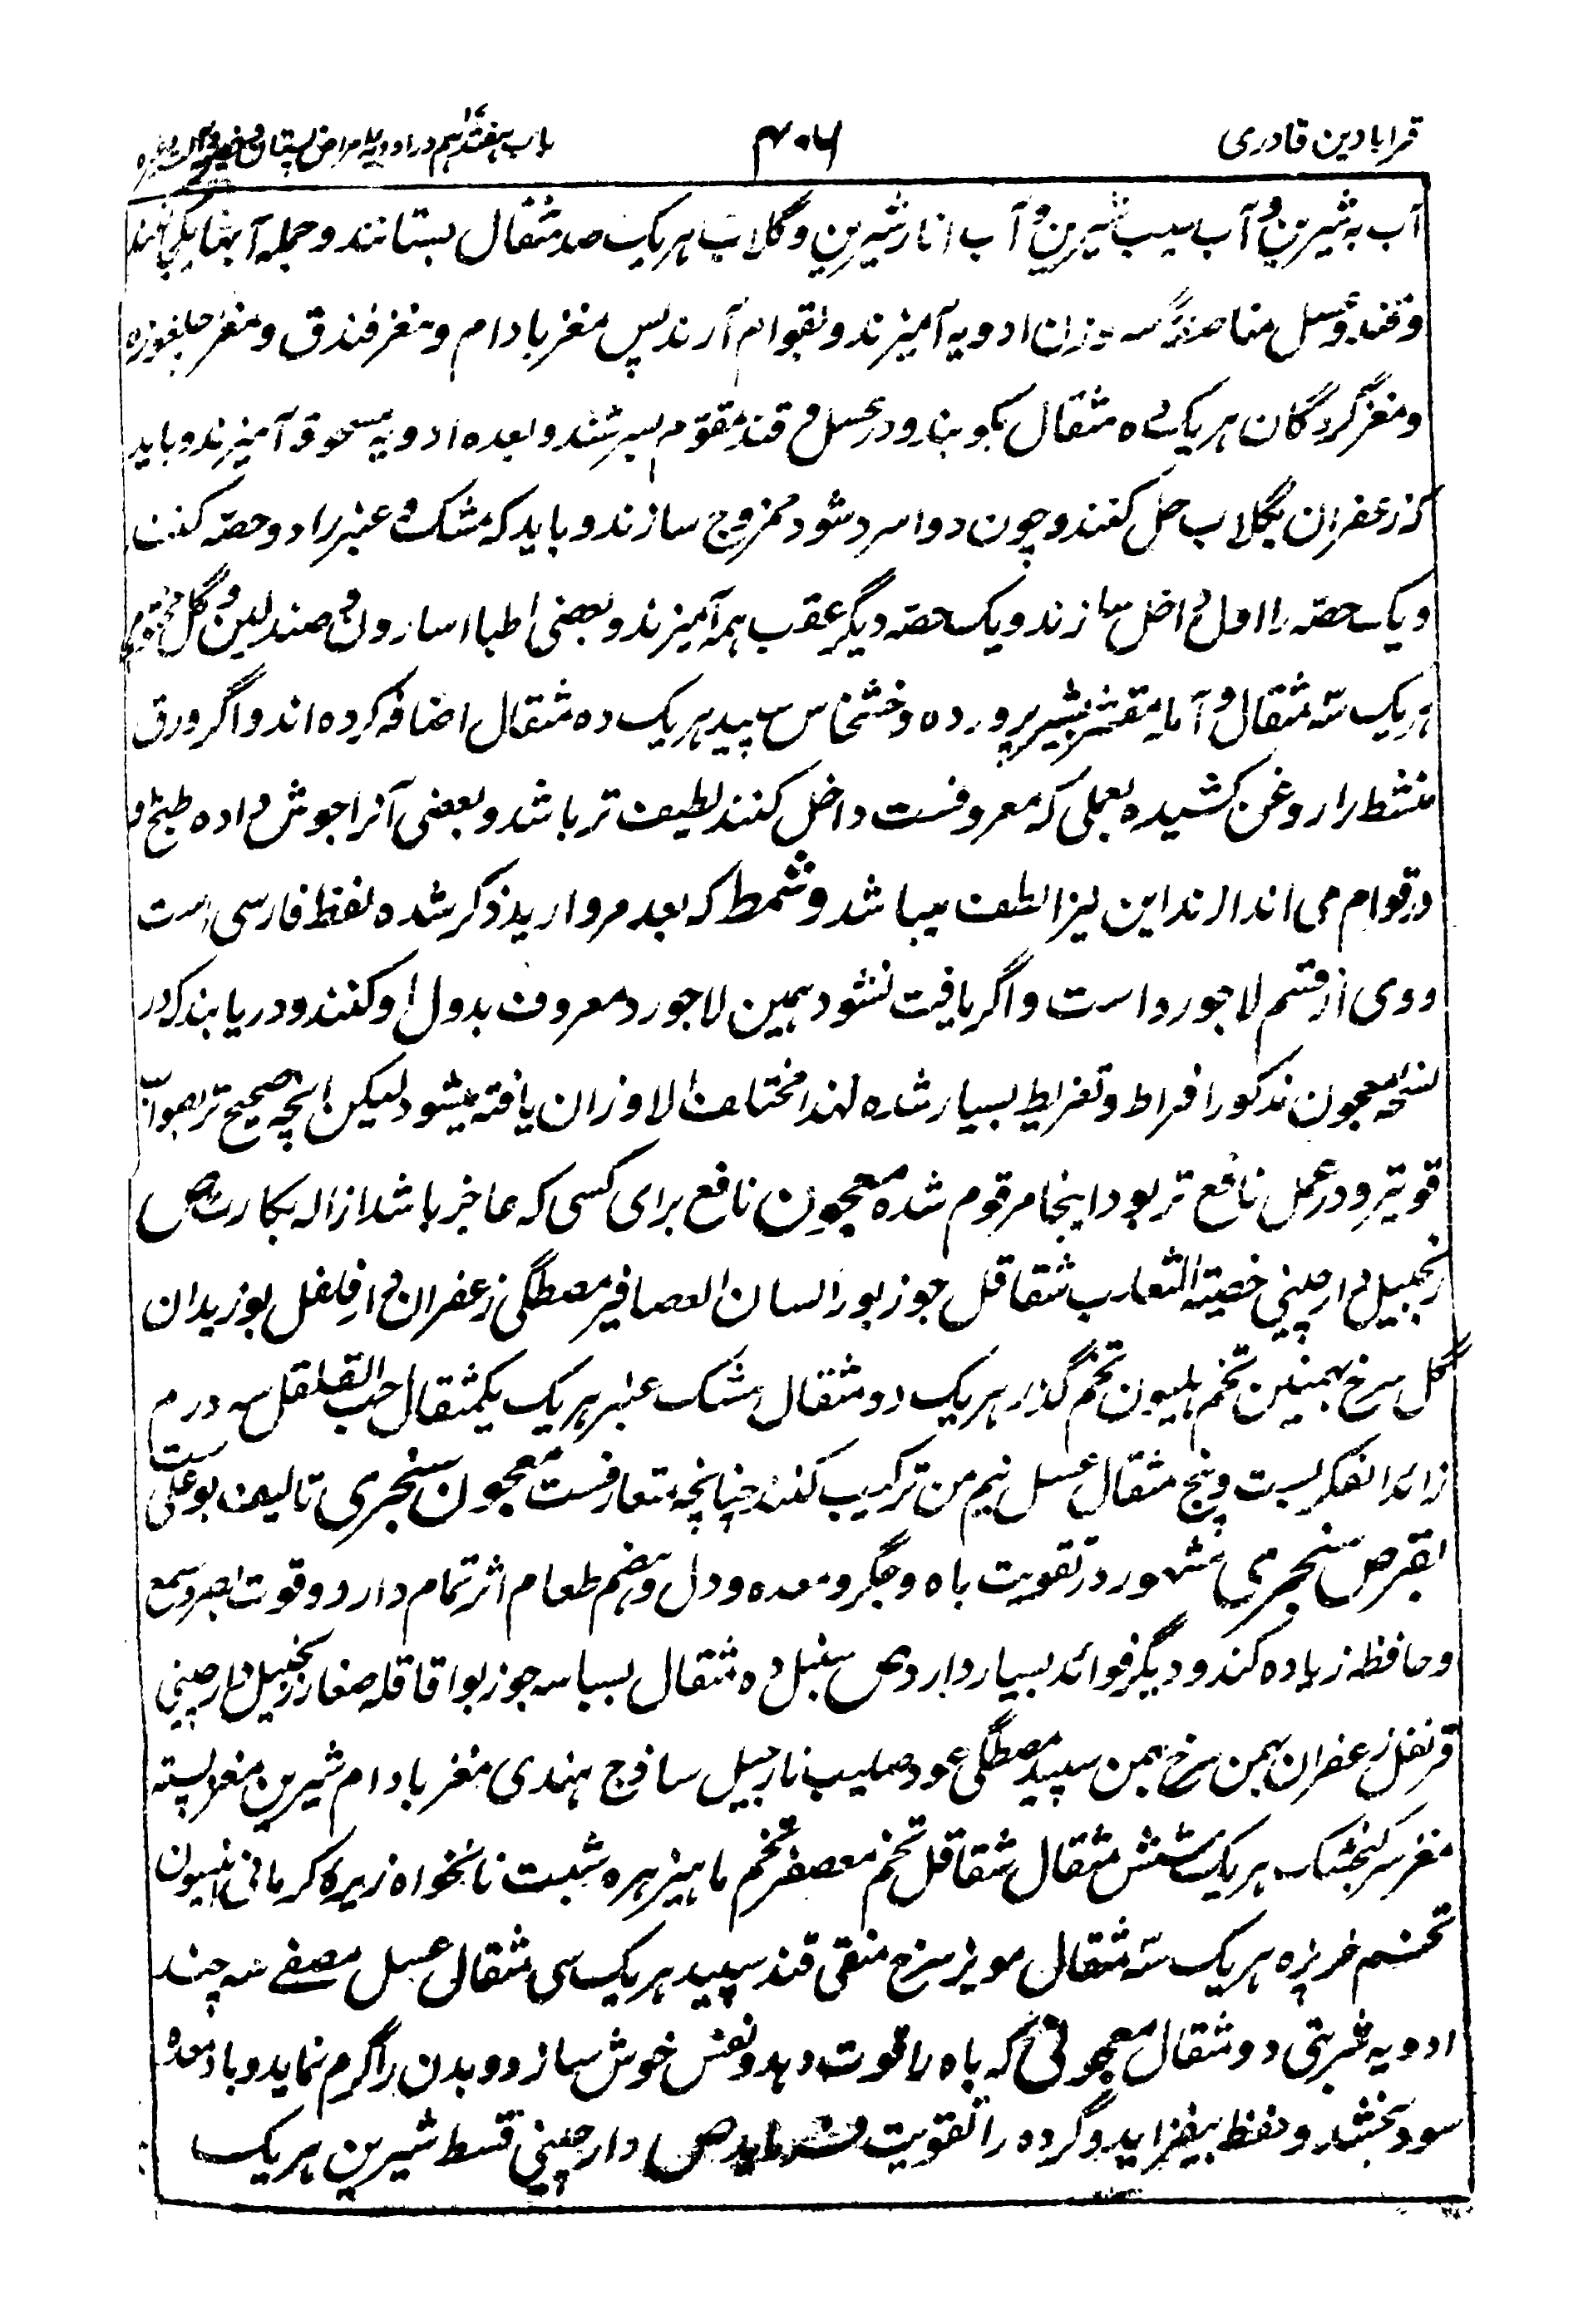 قرابادین قادری
۴۰۶
باب هفتدهم در ادویه امراض پستان و
آب به شیرین و آب سیب شیرین و آب انار شیرین و گلاب هریک صد مثقال بستانند و جمله آبها یکجا کنند
و قند و عسل مناصفة سه وزن ادویه آمیزند و بقوام آرند پس مغز بادام و مغز فندق و مغز چلغوزه
و مغز گردگان هریک ده مثقال بکوبند و در عسل و قند مقوم بسرشند و بعده ادویه مسحوق آمیزند و باید
که زعفران بگلاب حل کنند و چون دوا سرد شود ممزوج سازند و باید که مشک و عنبر را دو حصه کنند
و یک حصه را اول داخل سازند و یک حصه دیگر عقب همه آمیزند و بعضی اطبا اسارون و صندلین و گل مختوم
هریک سه مثقال و آمله مقشر بشیر پرورده و خشخاس سپید هریک ده مثقال اضافه کرده اند و اگر ورق
منشط را روغن کشیده بعملی که معروفست داخل کنند لطیف تر باشد و بعضی آنرا جوش داده طبخ و
در قوام می اندازند این نیز الطف میباشد و شمط که بعد مروارید ذکر شده لفظ فارسی است
و وی از قسم لاجورد است و اگر یافت نشود همین لاجورد معروف بدول او کنند و دریابند که در
نسخه معجون مذکور افراط و تفریط بسیار شده لهذا مختلف الاوزان یافته میشود لیکن انچه صحیح تر بصواب
قویتر و در عمل نافع تر بود اینجا مرقوم شده معجون نافع برای کسی که عاجز باشد ازاله بکارت ص
زنجبیل دارچینی خصیة الثعلب شقاقل جوزبوا لسان العصافیر مصطگی زعفران دارفلفل بوزیدان
گل سرخ بهمنین تخم هلیون تخم گذر هریک دو مثقال مشک عنبر هریک یکمثقال حب القلقل سه درم
زائد انفکر بست و پنج مثقال عسل نیم من ترکیب کنند چنانچه متعارفست معجون سنجری تالیف بوعلی ست
بقرص سنجری مشهور در تقویت باه و جگر و معده و دل و هضم طعام اثر تمام دارد و قوت بصر و سمع
و حافظه زیاده کند و دیگر فوائد بسیار دارد ص سنبل ده مثقال بسباسه جوزبوا قاقله صغار زنجبیل دارچینی
قرنفل زعفران بهمن سرخ بهمن سپید مصطگی عود صلیب نارجیل ساذج هندی مغز بادام شیرین مغز پسته
مغز سر کنجشک هریک شش مثقال شقاقل تخم معصفر تخم ماهیزهره شبت نانخواه زیره کرمانی انیسون
تخم خربزه هریک سه مثقال مویز سرخ منقی قند سپید هریک سی مثقال عسل مصفے سه چند
ادویه شربتی دو مثقال معجونی که باه را قوت دهد و نفس خوش سازد و بدن را گرم نماید و باد معده
سود بخشد و نفظ بیفزاید و گرده را تقویت فرماید ص دارچینی قسط شیرین هریک